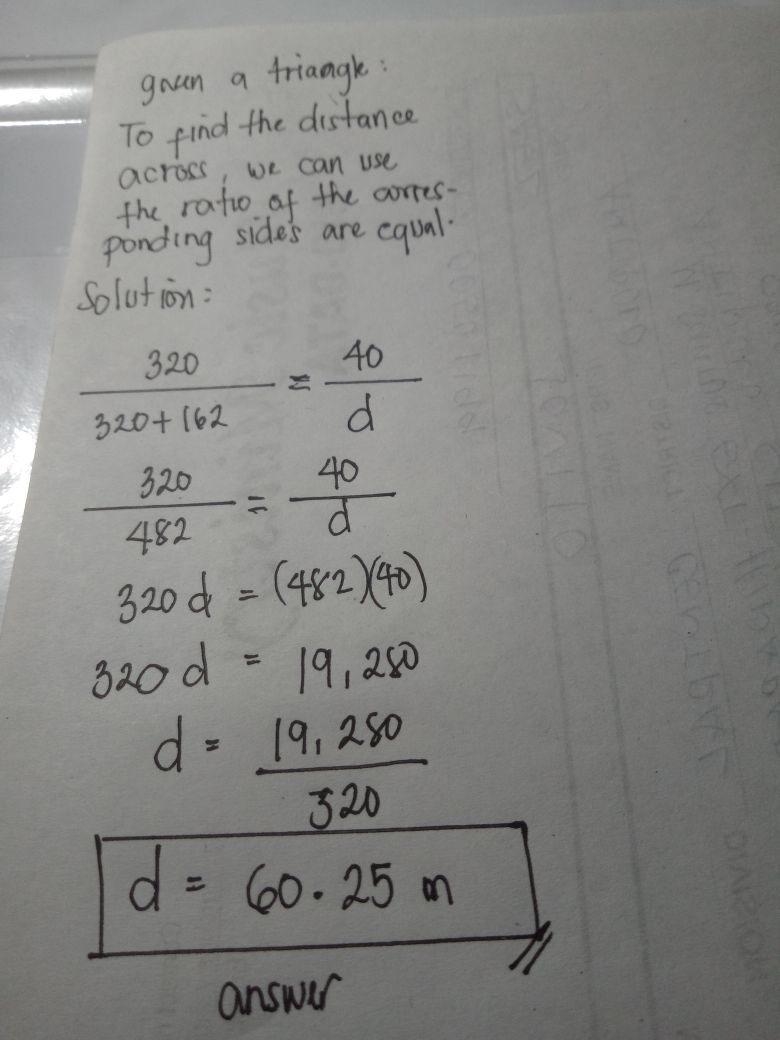 given a triangle:
To find the distance
across, we can use
the ratio of the corres-
ponding sides are equal.
Solution:
320 / 320+162 = 40 / d
320 / 482 = 40 / d
320 d = (482)(40)
320 d = 19,280
d = 19,280 / 320
d = 60.25 m
answer